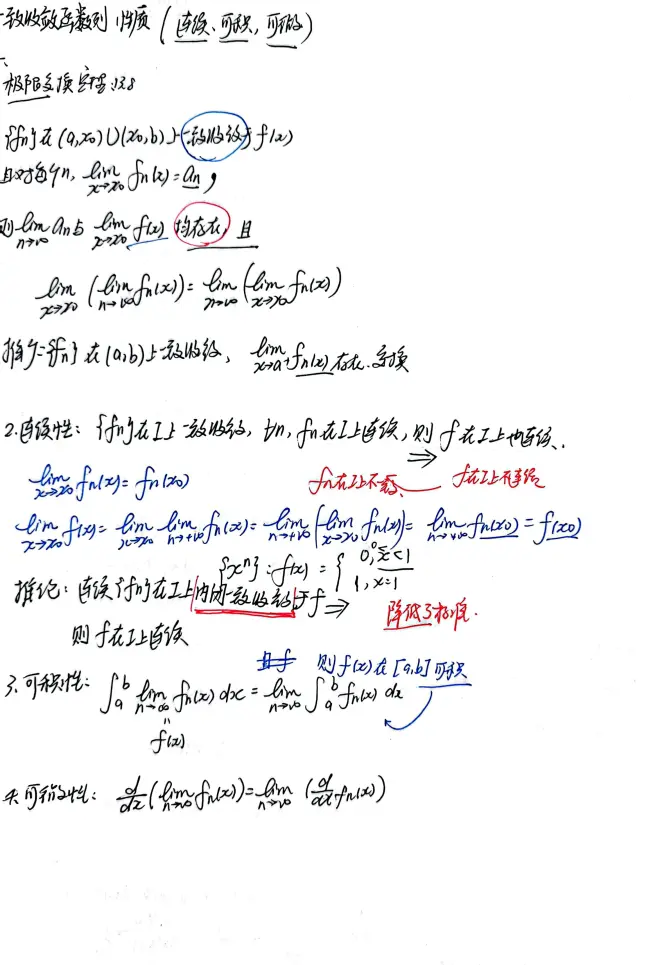 一致收敛函数列性质 (连续、可积, 可微)
极限交换定理 13.8
{fn}在(a,x0)∪(x0,b)上一致收敛于f(x)
且对每个n, lim x→x0 fn(x)=an,
则 lim n→∞ an与 lim x→x0 f(x) 均存在, 且
lim x→x0 (lim n→+∞ fn(x)) = lim n→∞ (lim x→x0 fn(x))
推广={fn}在(a,b)上一致收敛, lim x→a+ fn(x)存在.交换
2.连续性: {fn}在I上一致收敛, ∀n, fn在I上连续, 则 f在I上也连续.
⇒
lim x→x0 fn(x)=fn(x0) fn在I上不 f在I上不连续
lim x→x0 f(x)= lim x→x0 lim n→+∞ fn(x)= lim n→+∞ (lim x→x0 fn(x))= lim n→+∞ fn(x0) = f(x0)
{x^n}: f(x) = { 0, 0≤x<1
1, x=1
推论: 连续{fn}在I上内闭一致收敛于f ⇒ 降低了标准.
则 f在I上连续
且f 则f(x)在[a,b]可积
3.可积性: ∫a^b lim n→∞ fn(x) dx = lim n→∞ ∫a^b fn(x) dx
=
f(x)
4.可微性: d/dx (lim n→∞ fn(x)) = lim n→∞ (d/dx fn(x))